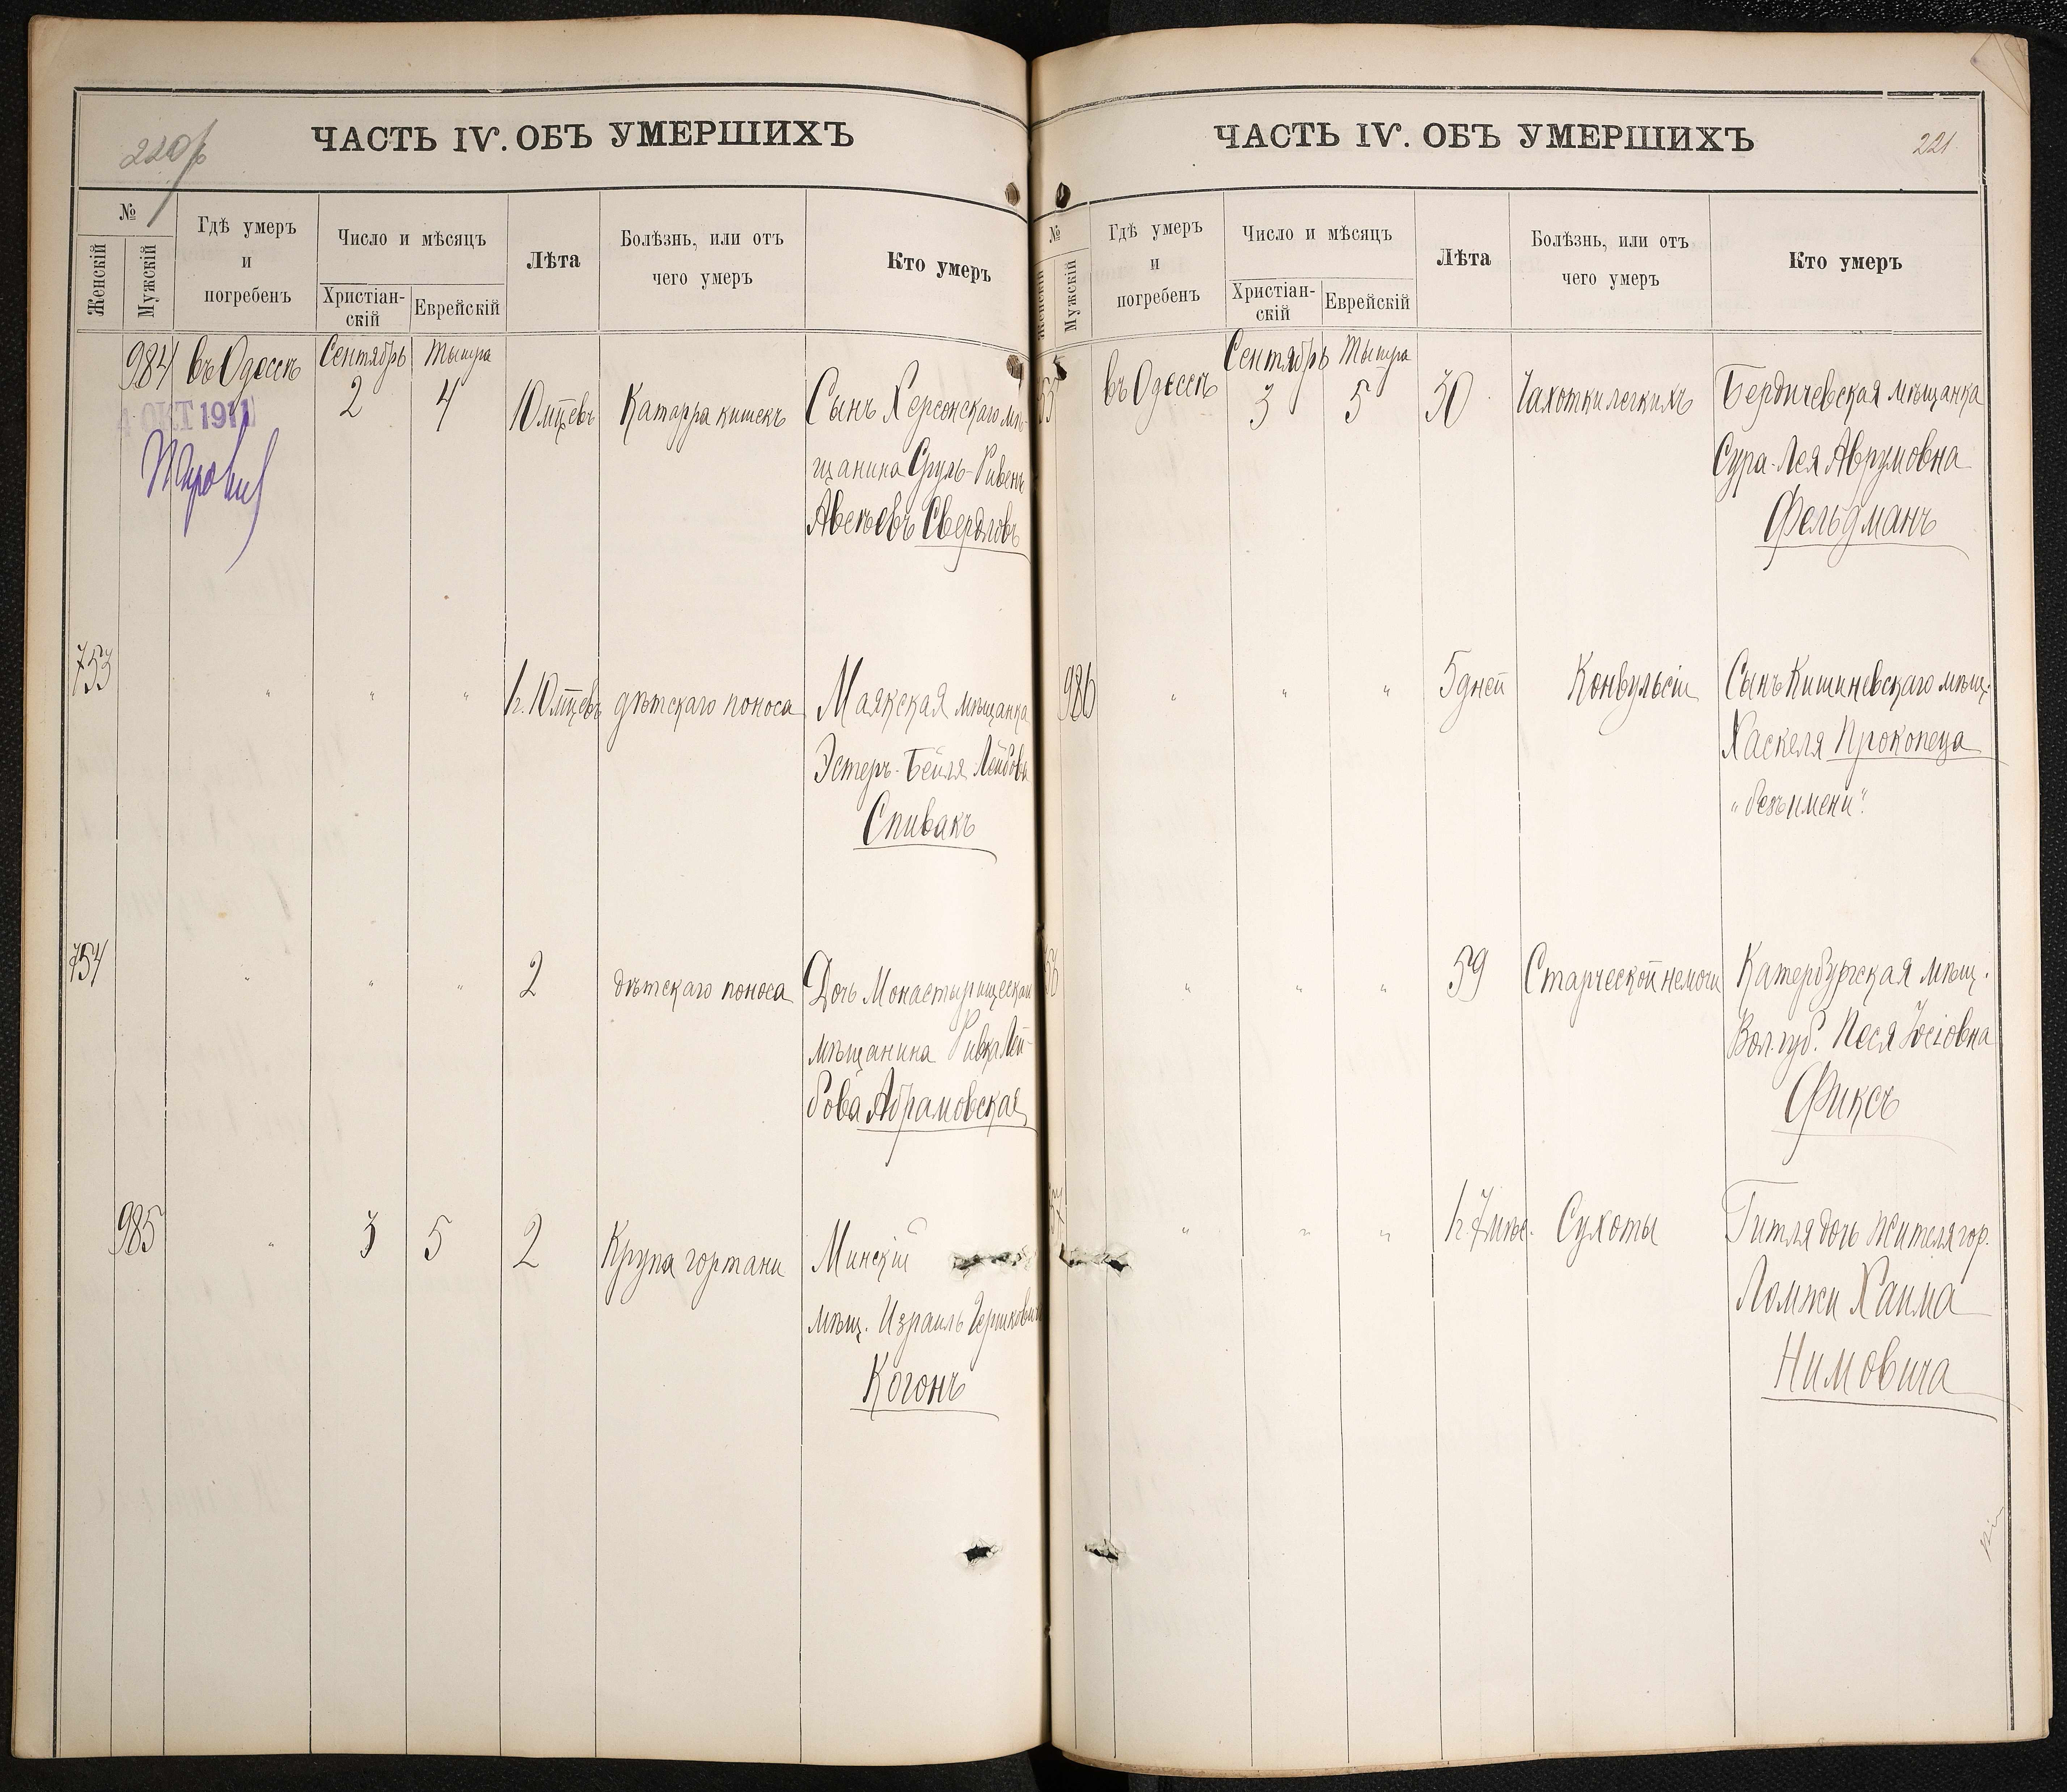 220 об
ЧАСТЬ IV. ОБЪ УМЕРШИХЪ
№
Женскій
Мужскій
Гдѣ умеръ
и
погребенъ
Число и мѣсяцъ
Христіан-
скій
Еврейскій
Лѣта
Болѣзнь, или отъ
чего умеръ
Кто умеръ
984 въ Одессѣ Сентябрь 2 Тышра 4 10 мѣцевъ Катарра кишекъ Сынъ Херсонскаго мѣ-
щанина Сруль-Рувенъ
Авсѣевъ Свердловъ
4 ОКТ 1911
753 " " " 1 г. 10 мѣцевъ дѣтскаго поноса Маякская мѣщанка
Эстеръ-Бейля Лейбова
Спивакъ
754 " " " 2 дѣтскаго поноса Дочь Монастырищескаго
мѣщанина Ривка Лей-
бова Абрамовская
985 " 3 5 2 Крупа гортани Минскій
мѣщ. Израиль Гершковичъ
Когонъ
221
ЧАСТЬ IV. ОБЪ УМЕРШИХЪ
№
Женскій
Мужскій
Гдѣ умеръ
и
погребенъ
Число и мѣсяцъ
Христіан-
скій
Еврейскій
Лѣта
Болѣзнь, или отъ
чего умеръ
Кто умеръ
55 въ Одессѣ Сентябрь 3 Тышра 5 30 Чахотки легкихъ Бердичевская мѣщанка
Сура-Лея Аврумовна
Фельдманъ
986 " " " 5 дней Конвульсіи Сынъ Кишиневскаго мѣщ.
Хаскеля Прокопеца
"безъ имени".
56 " " " 59 Старческой немочи Катербургская мѣщ.
Вол. губ. Песя Іосіовна
Фиксъ
57 " " " 1 г. 7 мѣс. Сухоты Гитля дочь жителя гор.
Ломжи Хаима
Нимовича